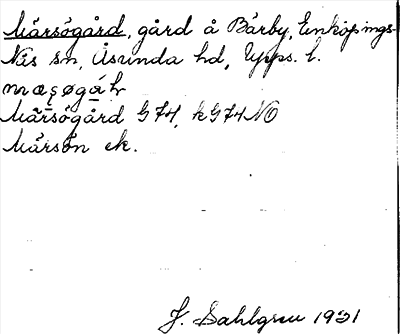 Mårsögård, gård å Bårby, Enköpings-
Näs sn, Åsunda hd, Upps. l.
Mårsögård G 74, k G 74 NO
Mårsön ek.
J. Sahlgren 1931